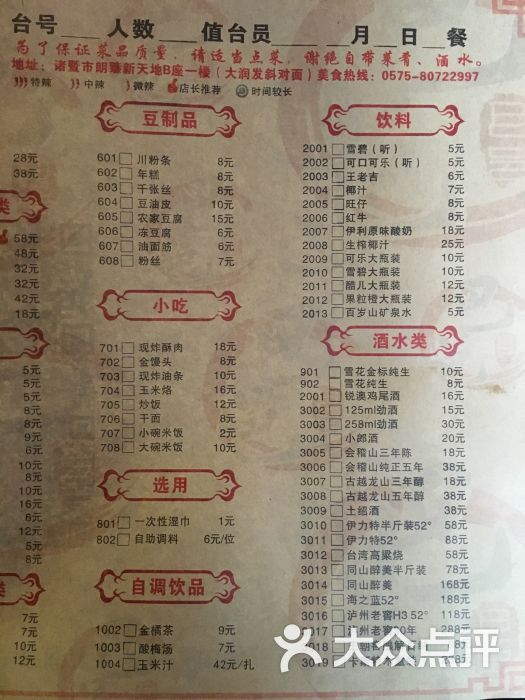 台号 人数 值台员 月 日 餐
为了保证菜品质量，请适当点菜，谢绝自带菜肴、酒水。
地址：诸暨市朗臻新天地B座一楼（大润发斜对面）美食热线：0575-80722997
特辣 中辣 微辣 店长推荐 时间较长
28元
38元
类
58元
48元
32元
32元
42元
18元
类
5元
5元
5元
5元
9元
6元
10元
8元
8元
8元
10元
10元
10元
8元
类
7元
7元
10元
12元
豆制品
601 川粉条 8元
602 年糕 8元
603 千张丝 8元
604 豆油皮 10元
605 农家豆腐 15元
606 冻豆腐 6元
607 油面筋 6元
608 粉丝 7元
小吃
701 现炸酥肉 18元
702 金馒头 8元
703 现炸油条 10元
704 玉米烙 16元
705 炒饭 12元
706 干面 8元
707 小碗米饭 2元
708 大碗米饭 10元
选用
801 一次性湿巾 1元
802 自助调料 6元/位
自调饮品
1002 金橘茶 9元
1003 酸梅汤 7元
1004 玉米汁 42元/扎
饮料
2001 雪碧（听） 5元
2002 可口可乐（听） 5元
2003 王老吉 6元
2004 椰汁 7元
2005 旺仔 8元
2006 红牛 8元
2007 伊利原味酸奶 18元
2008 生榨椰汁 25元
2009 可乐大瓶装 10元
2010 雪碧大瓶装 10元
2011 酷儿大瓶装 12元
2012 果粒橙大瓶装 12元
2013 百岁山矿泉水 5元
酒水类
901 雪花金标纯生 10元
902 雪花纯生 8元
2001 锐澳鸡尾酒 16元
3002 125ml劲酒 15元
3003 258ml劲酒 30元
3004 小郎酒 20元
3005 会稽山三年陈 18元
3006 会稽山纯正五年 38元
3007 古越龙山三年醇 18元
3008 古越龙山五年醇 38元
3009 土绍酒 28元
3010 伊力特半斤装52° 58元
3011 伊力特52° 88元
3012 台湾高粱烧 58元
3013 同山醉美半斤装 78元
3014 同山醉美 168元
3015 海之蓝52° 188元
3016 泸州老窖H3 52° 118元
3017 州老窖 0年 288元
3018
3019
大众点评